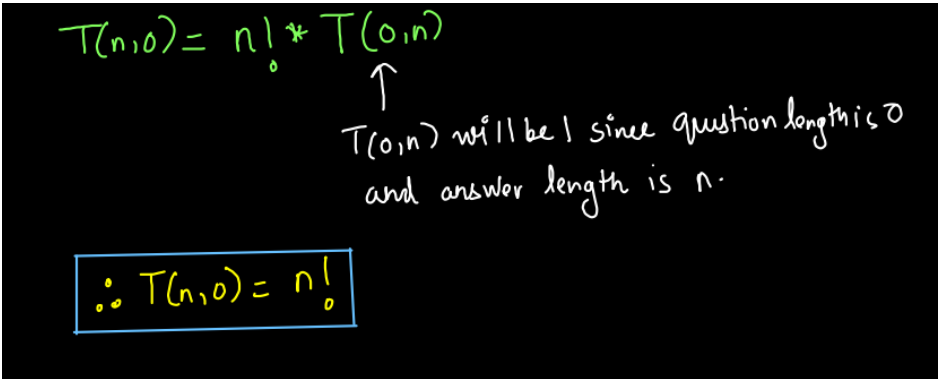 T(n,0) = n! * T(0,n)
↑
T(0,n) will be 1 since qustion length is 0
and answer length is n.
∴ T(n,0) = n!